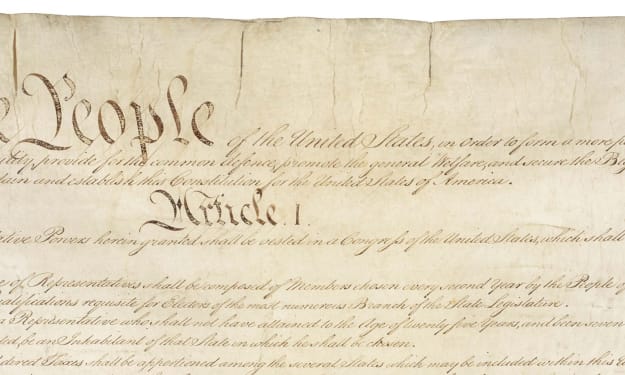 e People of the United States, in Order to form a more
provide for the common defence, promote the general Welfare, and secure the Bl
ain and establish this Constitution for the United States of America.
Article. I.
tive Powers herein granted shall be vested in a Congress of the United States, which shall
e of Representatives shall be composed of Members chosen every second Year by the People o
ualifications requisite for Electors of the most numerous Branch of the State Legislature.
Representative who shall not have attained to the Age of twenty five Years, and been seven
ted, be an Inhabitant of that State in which he shall be chosen.
Taxes shall be apportioned among the several States which may be included within this